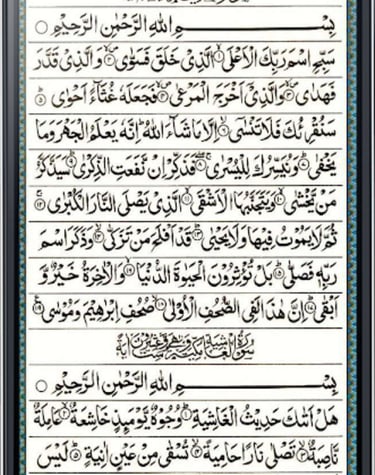 بِسْمِ اللهِ الرَّحْمٰنِ الرَّحِيْمِ ○
سَبِّحِ اسْمَ رَبِّكَ الْاَعْلَى ۙ۝۱ الَّذِىْ خَلَقَ فَسَوّٰى ۙ۝۲ وَالَّذِىْ قَدَّرَ
فَهَدٰى ۙ۝۳ وَالَّذِىْۤ اَخْرَجَ الْمَرْعٰى ۙ۝۴ فَجَعَلَهٗ غُثَآءً اَحْوٰى ۝۵
سَنُقْرِئُكَ فَلَا تَنْسٰٓى ۙ۝۶ اِلَّا مَا شَآءَ اللهُ اِنَّهٗ يَعْلَمُ الْجَهْرَ وَمَا
يَخْفٰى ۝۷ وَنُيَسِّرُكَ لِلْيُسْرٰى ۝۸ فَذَكِّرْ اِنْ نَّفَعَتِ الذِّكْرٰى ۝۹ سَيَذَّكَّرُ
مَنْ يَّخْشٰى ۝۱۰ وَيَتَجَنَّبُهَا الْاَشْقَى ۝۱۱ الَّذِىْ يَصْلَى النَّارَ الْكُبْرٰى ۝۱۲
ثُمَّ لَا يَمُوْتُ فِيْهَا وَلَا يَحْيٰى ۝۱۳ قَدْ اَفْلَحَ مَنْ تَزَكّٰى ۝۱۴ وَذَكَرَ اسْمَ
رَبِّهٖ فَصَلّٰى ۝۱۵ بَلْ تُؤْثِرُوْنَ الْحَيٰوةَ الدُّنْيَا ۝۱۶ وَالْاٰخِرَةُ خَيْرٌ وَّ
اَبْقٰى ۝۱۷ اِنَّ هٰذَا لَفِى الصُّحُفِ الْاُوْلٰى ۝۱۸ صُحُفِ اِبْرٰهِيْمَ وَمُوْسٰى ۝۱۹
سُوْرَةُ الْغَاشِيَةِ مَكِّيَّةٌ وَّهِىَ سِتٌّ وَّعِشْرُوْنَ اٰيَةً
بِسْمِ اللهِ الرَّحْمٰنِ الرَّحِيْمِ ○
هَلْ اَتٰىكَ حَدِيْثُ الْغَاشِيَةِ ۝۱ وُجُوْهٌ يَّوْمَئِذٍ خَاشِعَةٌ ۝۲ عَامِلَةٌ
نَّاصِبَةٌ ۝۳ تَصْلٰى نَارًا حَامِيَةً ۝۴ تُسْقٰى مِنْ عَيْنٍ اٰنِيَةٍ ۝۵ لَيْسَ